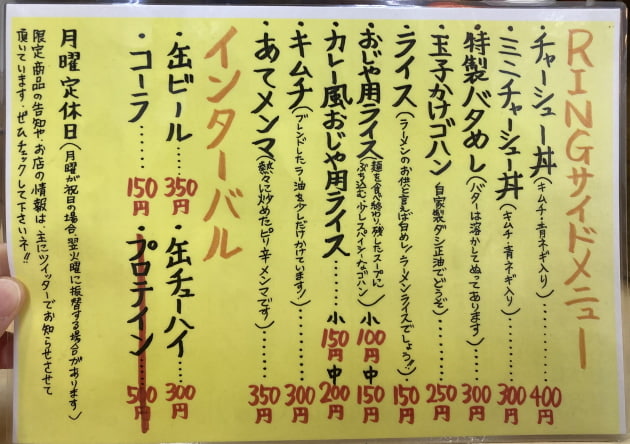 RINGサイドメニュー
・チャーシュー丼(キムチ・青ネギ入り)……400円
・ミニチャーシュー丼(キムチ・青ネギ入り)……300円
・特製バタめし(バターは溶かしてぬってあります)……300円
・玉子かけゴハン 自家製ダシ正油でどうぞ……250円
・ライス(ラーメンのお供と言えば白めし!ラーメンライスでしょう!!)……150円
・おじや用ライス(麺を食べ終わり、残したスープにぶち込む、少しスパイシーなゴハン)小100円 中150円
・カレー風おじや用ライス……小150円 中200円
・キムチ(ブレンドしたラー油を少しだけかけています!)……300円
・あてメンマ(熱々に炒めたピリ辛メンマです)……350円
インターバル
・缶ビール……350円 ・缶チューハイ 300円
・コーラ……150円 ・プロテイン……500円
月曜定休日(月曜が祝日の場合、翌火曜に振替する場合があります)
限定商品の告知や、お店の情報は、主にツイッターでお知らせさせて
頂いています。ぜひチェックして下さいネ!!